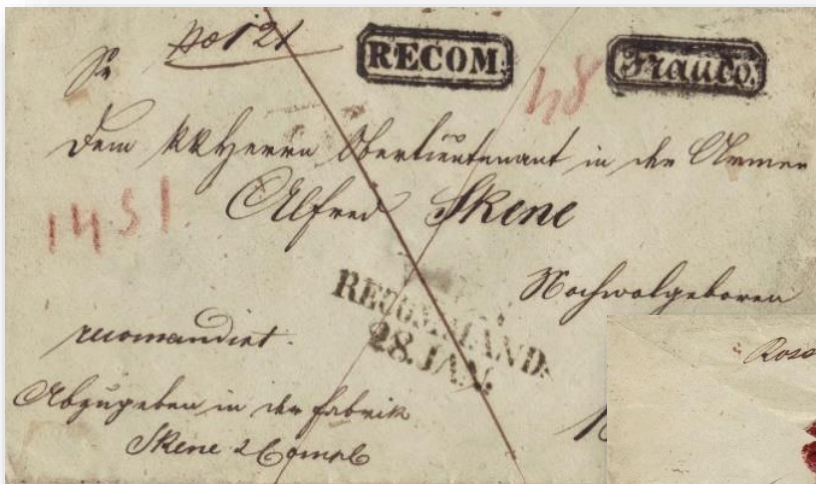 No 121
RECOM.
Franco.
Sr
48
Dem KK Herrn Oberlieutenant in der Armee
1451
Alfred Skene
Hochwolgeboren
RECOMMAND:
28. JAN.
recomandirt.
Abzugeben in der Fabrik
Skene & Comp